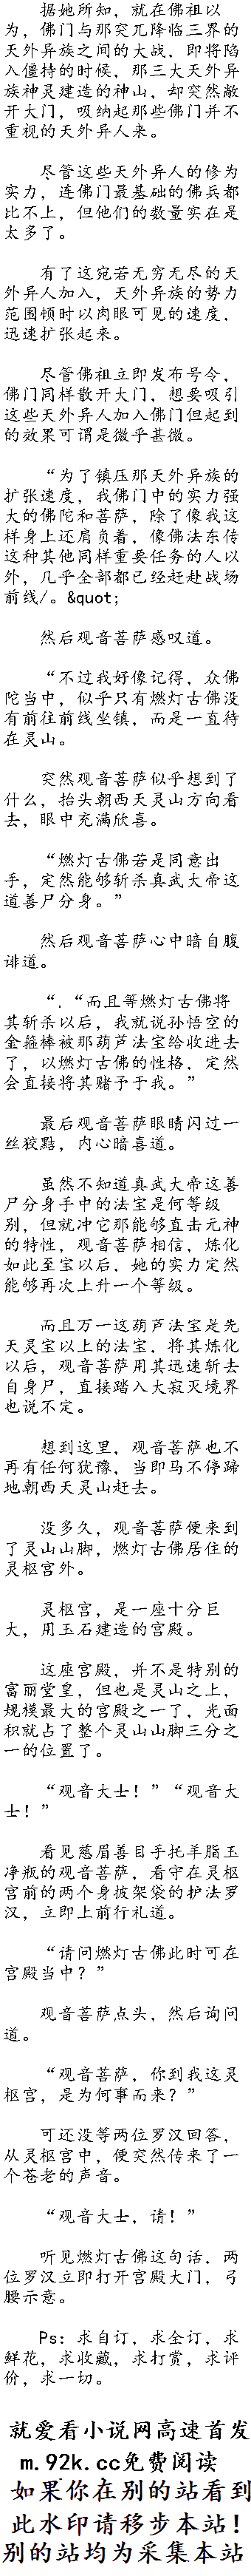 据她所知，就在佛祖以
为，佛门与那突兀降临三界的
天外异族之间的大战，即将陷
入僵持的时候，那三大天外异
族神灵建造的神山，却突然敞
开大门，吸纳起那些佛门并不
重视的天外异人来。
尽管这些天外异人的修为
实力，连佛门最基础的佛兵都
比不上，但他们的数量实在是
太多了。
有了这宛若无穷无尽的天
外异人加入，天外异族的势力
范围顿时以肉眼可见的速度，
迅速扩张起来。
尽管佛祖立即发布号令，
佛门同样散开大门，想要吸引
这些天外异人加入佛门但起到
的效果可谓是微乎甚微。
“为了镇压那天外异族的
扩张速度，我佛门中的实力强
大的佛陀和菩萨，除了像我这
样身上还肩负着，像佛法东传
这种其他同样重要任务的人以
外，几乎全部都已经赶赴战场
前线/。&quot;
然后观音菩萨感叹道。
“不过我好像记得，众佛
陀当中，似乎只有燃灯古佛没
有前往前线坐镇，而是一直待
在灵山。
突然观音菩萨似乎想到了
什么，抬头朝西天灵山方向看
去，眼中充满欣喜。
“燃灯古佛若是同意出
手，定然能够斩杀真武大帝这
道善尸分身。”
然后观音菩萨心中暗自腹
诽道。
“.“而且等燃灯古佛将
其斩杀以后，我就说孙悟空的
金箍棒被那葫芦法宝给收进去
了，以燃灯古佛的性格，定然
会直接将其赌予于我。”
最后观音菩萨眼睛闪过一
丝狡黠，内心暗喜道。
虽然不知道真武大帝这善
尸分身手中的法宝是何等级
别，但就冲它那能够直击元神
的特性，观音菩萨相信，炼化
如此至宝以后，她的实力定然
能够再次上升一个等级。
而且万一这葫芦法宝是先
天灵宝以上的法宝，将其炼化
以后，观音菩萨用其迅速斩去
自身尸，直接踏入大寂灭境界
也说不定。
想到这里，观音菩萨也不
再有任何犹豫，当即马不停蹄
地朝西天灵山赶去。
没多久，观音菩萨便来到
了灵山山脚，燃灯古佛居住的
灵枢宫外。
灵枢宫，是一座十分巨
大，用玉石建造的宫殿。
这座宫殿，并不是特别的
富丽堂皇，但也是灵山之上，
规模最大的宫殿之一了，光面
积就占了整个灵山山脚三分之
一的位置了。
“观音大士！”“观音大
士！”
看见慈眉善目手托羊脂玉
净瓶的观音菩萨，看守在灵枢
宫前的两个身披袈裟的护法罗
汉，立即上前行礼道。
“请问燃灯古佛此时可在
宫殿当中？”
观音菩萨点头，然后询问
道。
“观音菩萨，你到我这灵
枢宫，是为何事而来？”
可还没等两位罗汉回答，
从灵枢宫中，便突然传来了一
个苍老的声音。
“观音大士，请！”
听见燃灯古佛这句话，两
位罗汉立即打开宫殿大门，弓
腰示意。
Ps：求自订，求全订，求
鲜花，求收藏，求打赏，求评
价，求一切。
就爱看小说网高速首发
m.92k.cc免费阅读
如果你在别的站看到
此水印请移步本站！
别的站均为采集本站